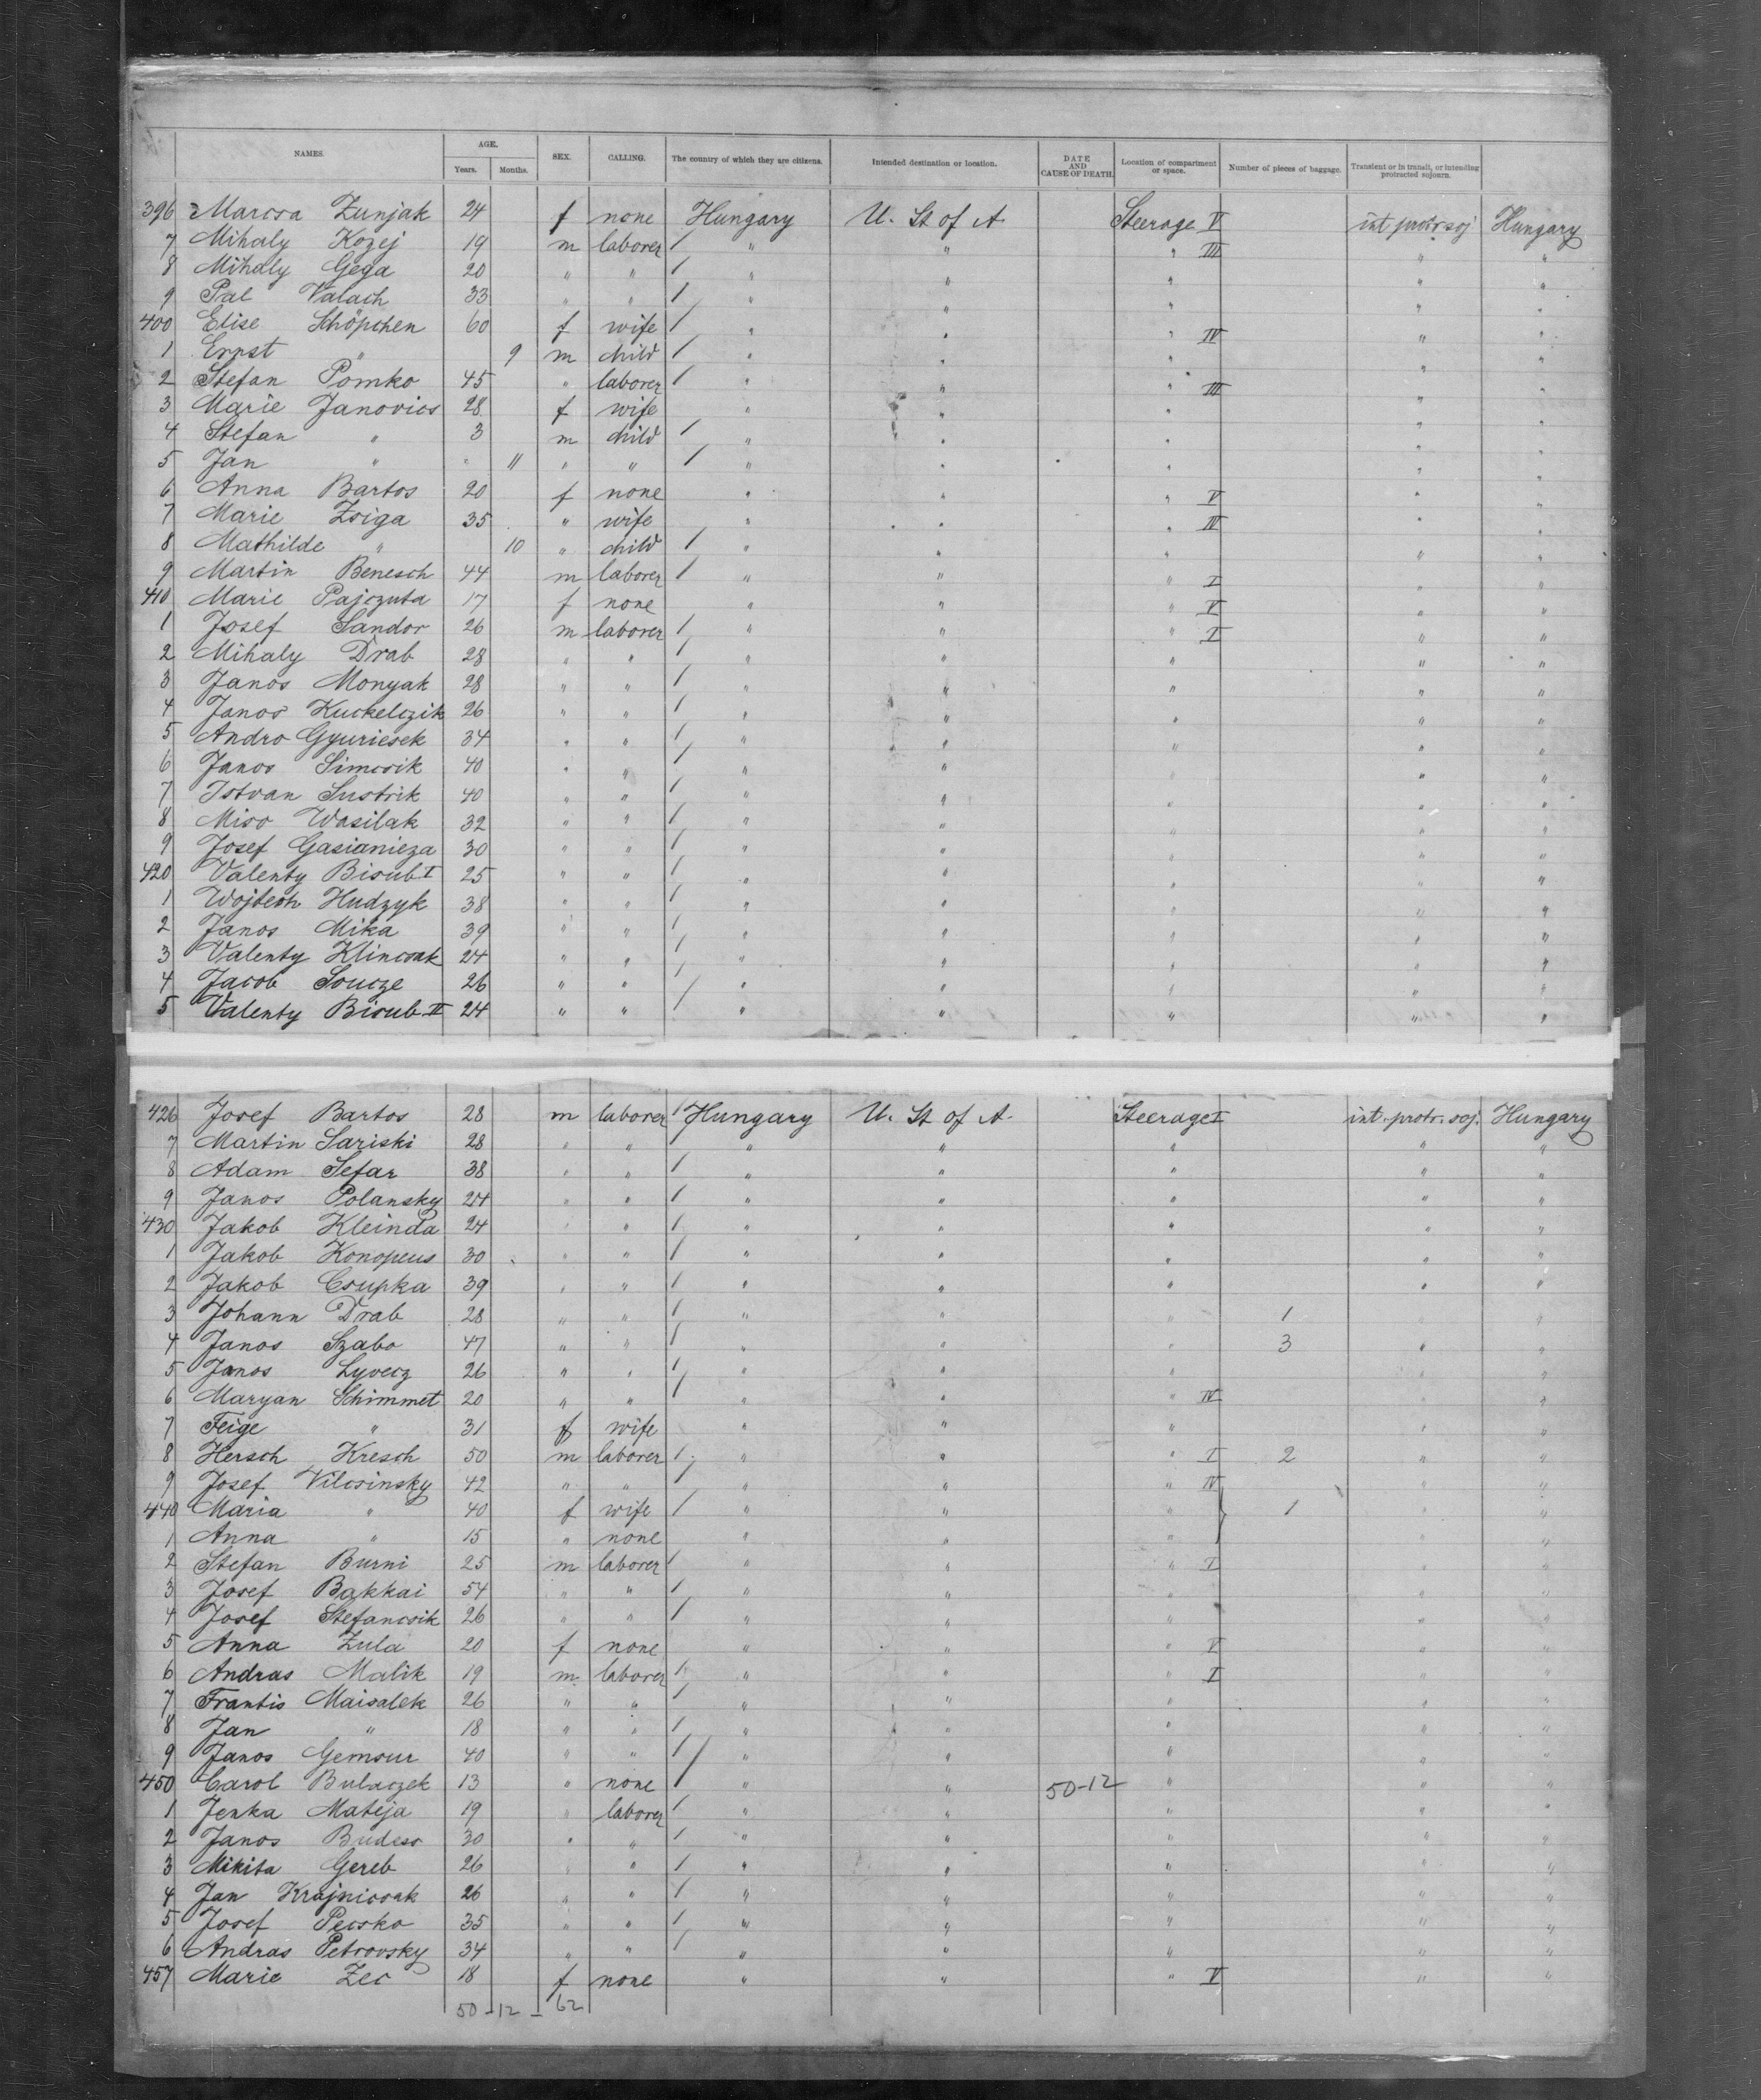 NAMES. AGE. SEX. CALLING. The country of which they are citizens. Intended destination or location. DATE AND CAUSE OF DEATH. Location of compartment or space. Number of pieces of baggage. Transient or in transit, or intending protracted sojourn.
Years. Months.
396 Marcsa Zunjak 24 f none Hungary U. St of A Steerage V int protr soj Hungary
7 Mihaly Kozej 19 m laborer / " " " III " "
8 Mihaly Gega 20 " " / " " " " "
9 Pal Valach 33 " " / " " " " "
400 Elise Schöpchen 60 f wife / " " " IV " "
1 Ernst " 9 m child / " " " " "
2 Stefan Pomko 45 " laborer / " " " III " "
3 Marie Janovics 28 f wife " " " " "
4 Stefan " 3 m child / " " " " "
5 Jan " " 11 " " / " " " " "
6 Anna Bartos 20 f none " " " V " "
7 Marie Zsiga 35 " wife " " " IV " "
8 Mathilde " 10 " child / " " " " "
9 Martin Benesch 44 m laborer / " " " I " "
410 Marie Pajczuta 17 f none " " " V " "
1 Josef Sandor 26 m laborer / " " " I " "
2 Mihaly Drab 28 " " / " " " " "
3 Janos Monyak 28 " " / " " " " "
4 Janos Kuckelczik 26 " " / " " " " "
5 Andro Gyuricsek 34 " " / " " " " "
6 Janos Simcsik 40 " " / " " " "
7 Istvan Sustrik 40 " " / " " " " "
8 Miso Wasilak 32 " " / " " " " "
9 Josef Gasianieza 30 " " / " " " " "
420 Valenty Bisub I 25 " " / " " " " "
1 Wojtech Hudzyk 38 " " / " " " " "
2 Janos Mika 39 " " / " " " " "
3 Valenty Klincsak 24 " " / " " " " "
4 Jacob Soucze 26 " " / " " " " "
5 Valenty Bisub II 24 " " / " " " " "
426 Josef Bartos 28 m laborer / Hungary U. St of A. Steerage I int. protr. soj. Hungary
7 Martin Sariski 28 " " " " " " "
8 Adam Sefar 38 " " / " " " " "
9 Janos Polansky 24 " " / " " " " "
430 Jakob Kleinda 24 " " / " " " " "
1 Jakob Konopeus 30 " " / " " " " "
2 Jakob Csupka 39 " " / " " " " "
3 Johann Drab 28 " " / " " " 1 " "
4 Janos Szabo 47 " " / " " " 3 " "
5 Janos Lyvecz 26 " " / " " " " "
6 Maryan Schimmet 20 " " / " " " IV " "
7 Feige " 31 f wife " " " " "
8 Hersch Kresch 50 m laborer / " " " I 2 " "
9 Josef Vilcsinsky 42 " " / " " " IV " "
440 Maria " 40 f wife / " " " 1 " "
1 Anna " 15 " none " " " " "
2 Stefan Burni 25 m laborer / " " " I " "
3 Josef Bakkai 54 " " / " " " " "
4 Josef Stefancsik 26 " " / " " " " "
5 Anna Zula 20 f none " " " V " "
6 Andras Malik 19 m laborer / " " " I " "
7 Frantis Maisalek 26 " " / " " " " "
8 Jan " 18 " " / " " " " "
9 Janos Gemsur 40 " " / " " " " "
450 Carol Bulaczek 13 " none / " " 50-12 " " "
1 Jenka Mateja 19 " laborer / " " " " "
2 Janos Budess 30 " " / " " " " "
3 Mikita Gereb 26 " " / " " " " "
4 Jan Krajnicsak 26 " " / " " " " "
5 Josef Pecsko 35 " " / " " " " "
6 Andras Petrovsky 34 " " / " " " " "
457 Marie Zec 18 f none " " " V " "
50 - 12 - 62